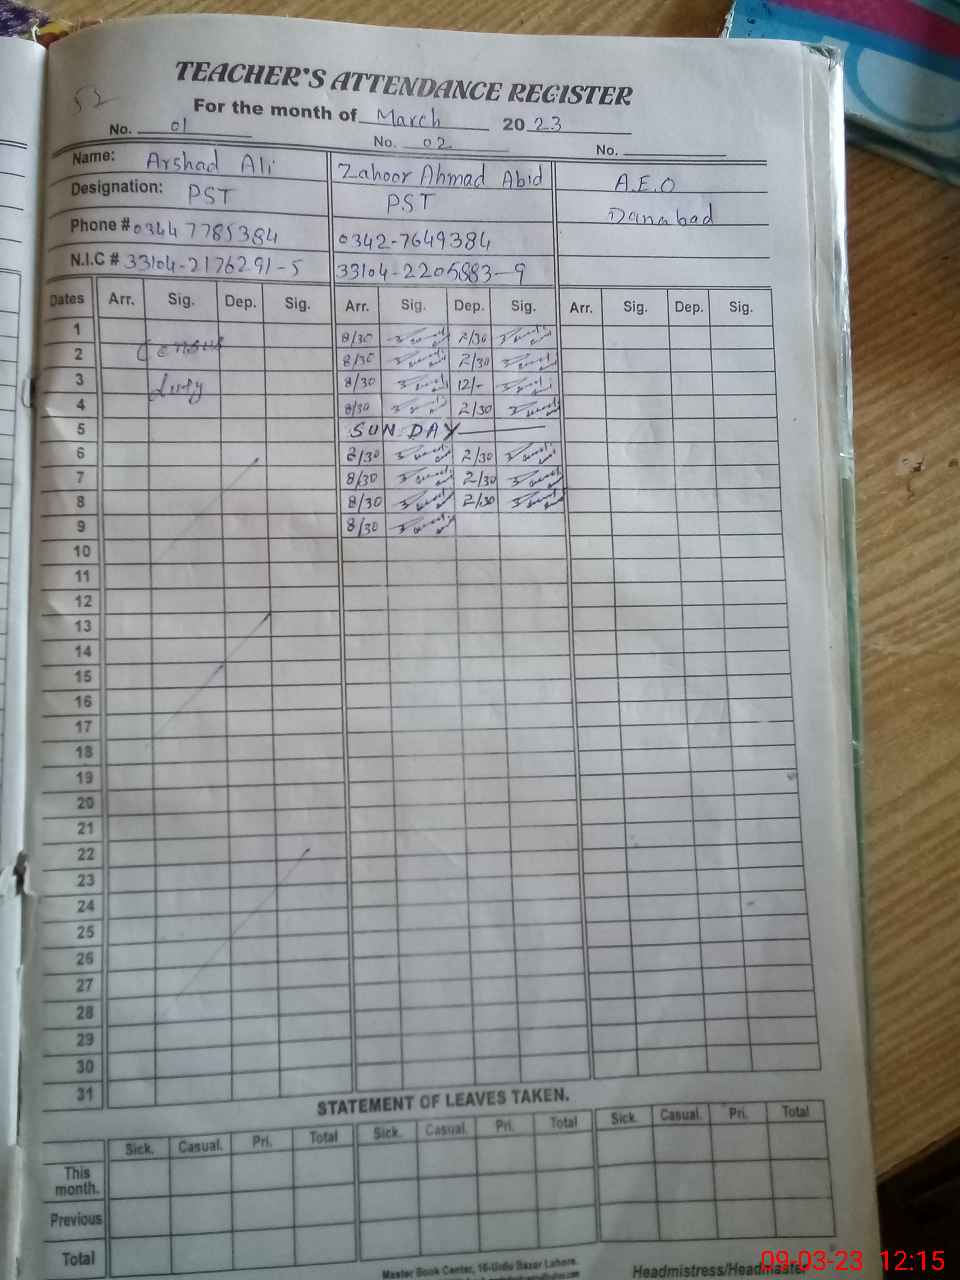 52
TEACHER'S ATTENDANCE REGISTER
For the month of March 2023
No. 01 No. 02 No.
Name: Arshad Ali Zahoor Ahmad Abid A.E.O
Designation: PST PST Danabad
Phone # 0344 7785384 0342-7649384
N.I.C # 33104-2176291-5 33104-2205883-9
Dates Arr. Sig. Dep. Sig. Arr. Sig. Dep. Sig. Arr. Sig. Dep. Sig.
1 8/30 2/30
2 Census 8/30 2/30
3 Duty 8/30 12/-
4 8/30 2/30
5 SUNDAY
6 8/30 2/30
7 8/30 2/30
8 8/30 2/30
9 8/30
10
11
12
13
14
15
16
17
18
19
20
21
22
23
24
25
26
27
28
29
30
31
STATEMENT OF LEAVES TAKEN.
Sick. Casual. Pri. Total Sick. Casual. Pri. Total Sick. Casual. Pri. Total
This month.
Previous
Total
Master Book Center, 16-Urdu Bazar Lahore.
Headmistress/Headmaster
09-03-23 12:15